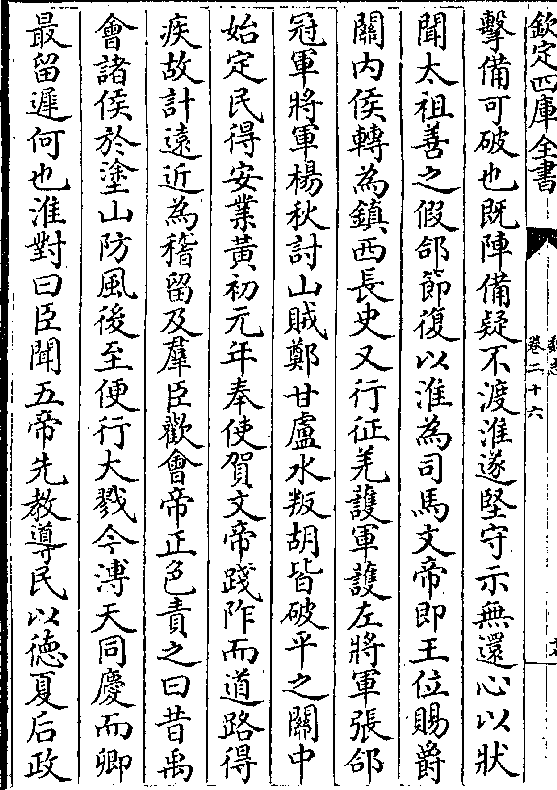 欽定四庫全書
魏志
卷二十六
擊備可破也既陣備疑不渡淮遂堅守示無還心以狀
聞太祖善之假郃節復以淮為司馬文帝即王位賜爵
關内侯轉為鎮西長史又行征羌護軍護左將軍張郃
冠軍將軍楊秋討山賊鄭甘盧水叛胡皆破平之關中
始定民得安業黃初元年奉使賀文帝踐阼而道路得
疾故計遠近為稽留及羣臣歡會帝正色責之曰昔禹
會諸侯於塗山防風後至便行大戮今溥天同慶而卿
最留遲何也淮對曰臣聞五帝先教導民以德夏后政